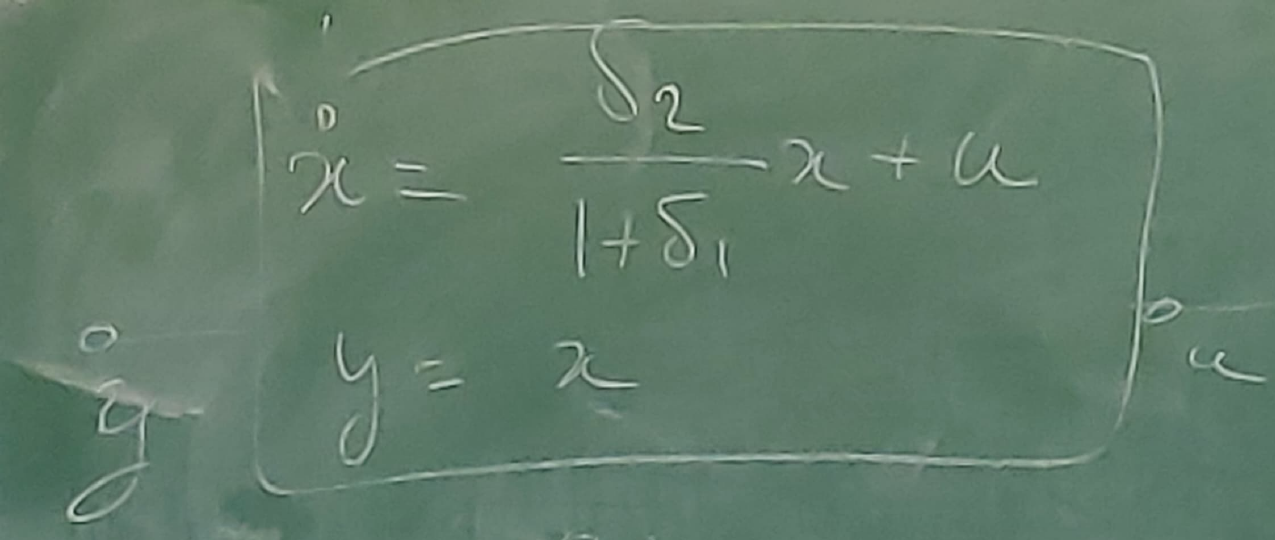 ẋ = δ₂ / (1+δ₁) x + u
y = x
y
u